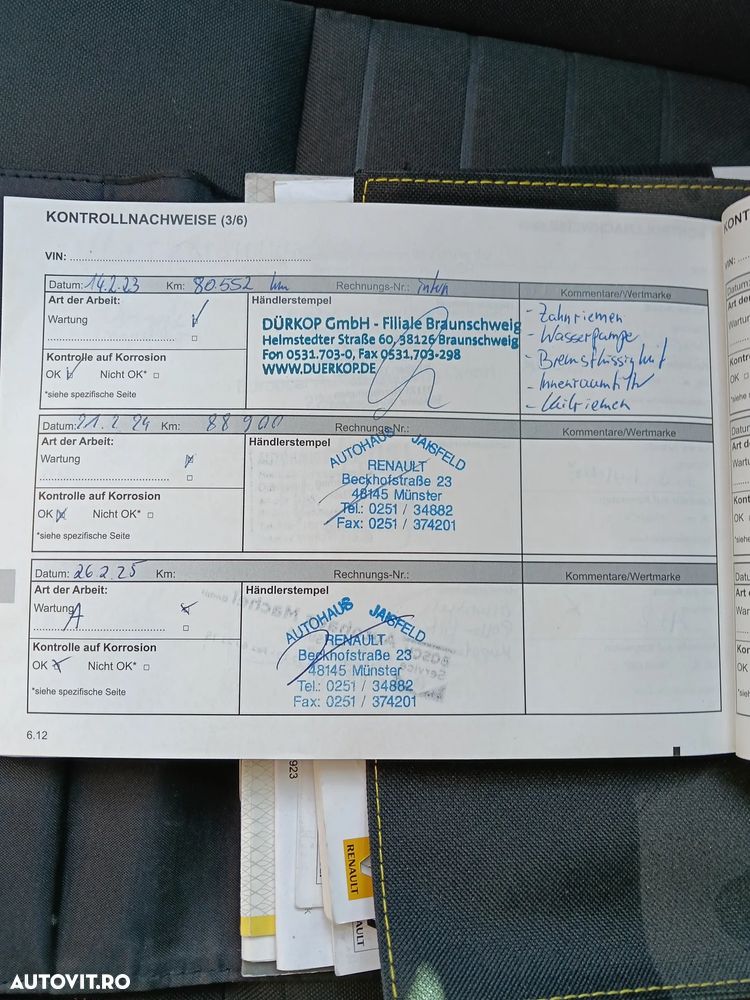 KONTROLLNACHWEISE (3/6)
VIN:
Datum: 14.2.23 Km: 80.552 km Rechnungs-Nr.: intern
Kommentare/Wertmarke
Art der Arbeit:
Wartung
Kontrolle auf Korrosion
OK Nicht OK*
*siehe spezifische Seite
Händlerstempel
DÜRKOP GmbH - Filiale Braunschweig
Helmstedter Straße 60, 38126 Braunschweig
Fon 0531.703-0, Fax 0531.703-298
WWW.DUERKOP.DE
- Zahnriemen
- Wasserpumpe
- Bremsflüssigkeit
- Innenraumfilter
- Keilriemen
Datum: 21.2.24 Km: 88900 Rechnungs-Nr.:
Kommentare/Wertmarke
Art der Arbeit:
Wartung
Kontrolle auf Korrosion
OK Nicht OK*
*siehe spezifische Seite
Händlerstempel
AUTOHAUS JAISFELD
RENAULT
Beckhofstraße 23
48145 Münster
Tel.: 0251 / 34882
Fax: 0251 / 374201
Datum: 26.2.25 Km: Rechnungs-Nr.:
Kommentare/Wertmarke
Art der Arbeit:
Wartung A
Kontrolle auf Korrosion
OK Nicht OK*
*siehe spezifische Seite
Händlerstempel
AUTOHAUS JAISFELD
RENAULT
Beckhofstraße 23
48145 Münster
Tel.: 0251 / 34882
Fax: 0251 / 374201
6.12
923
RENAULT
AULT
AUTOVIT.RO